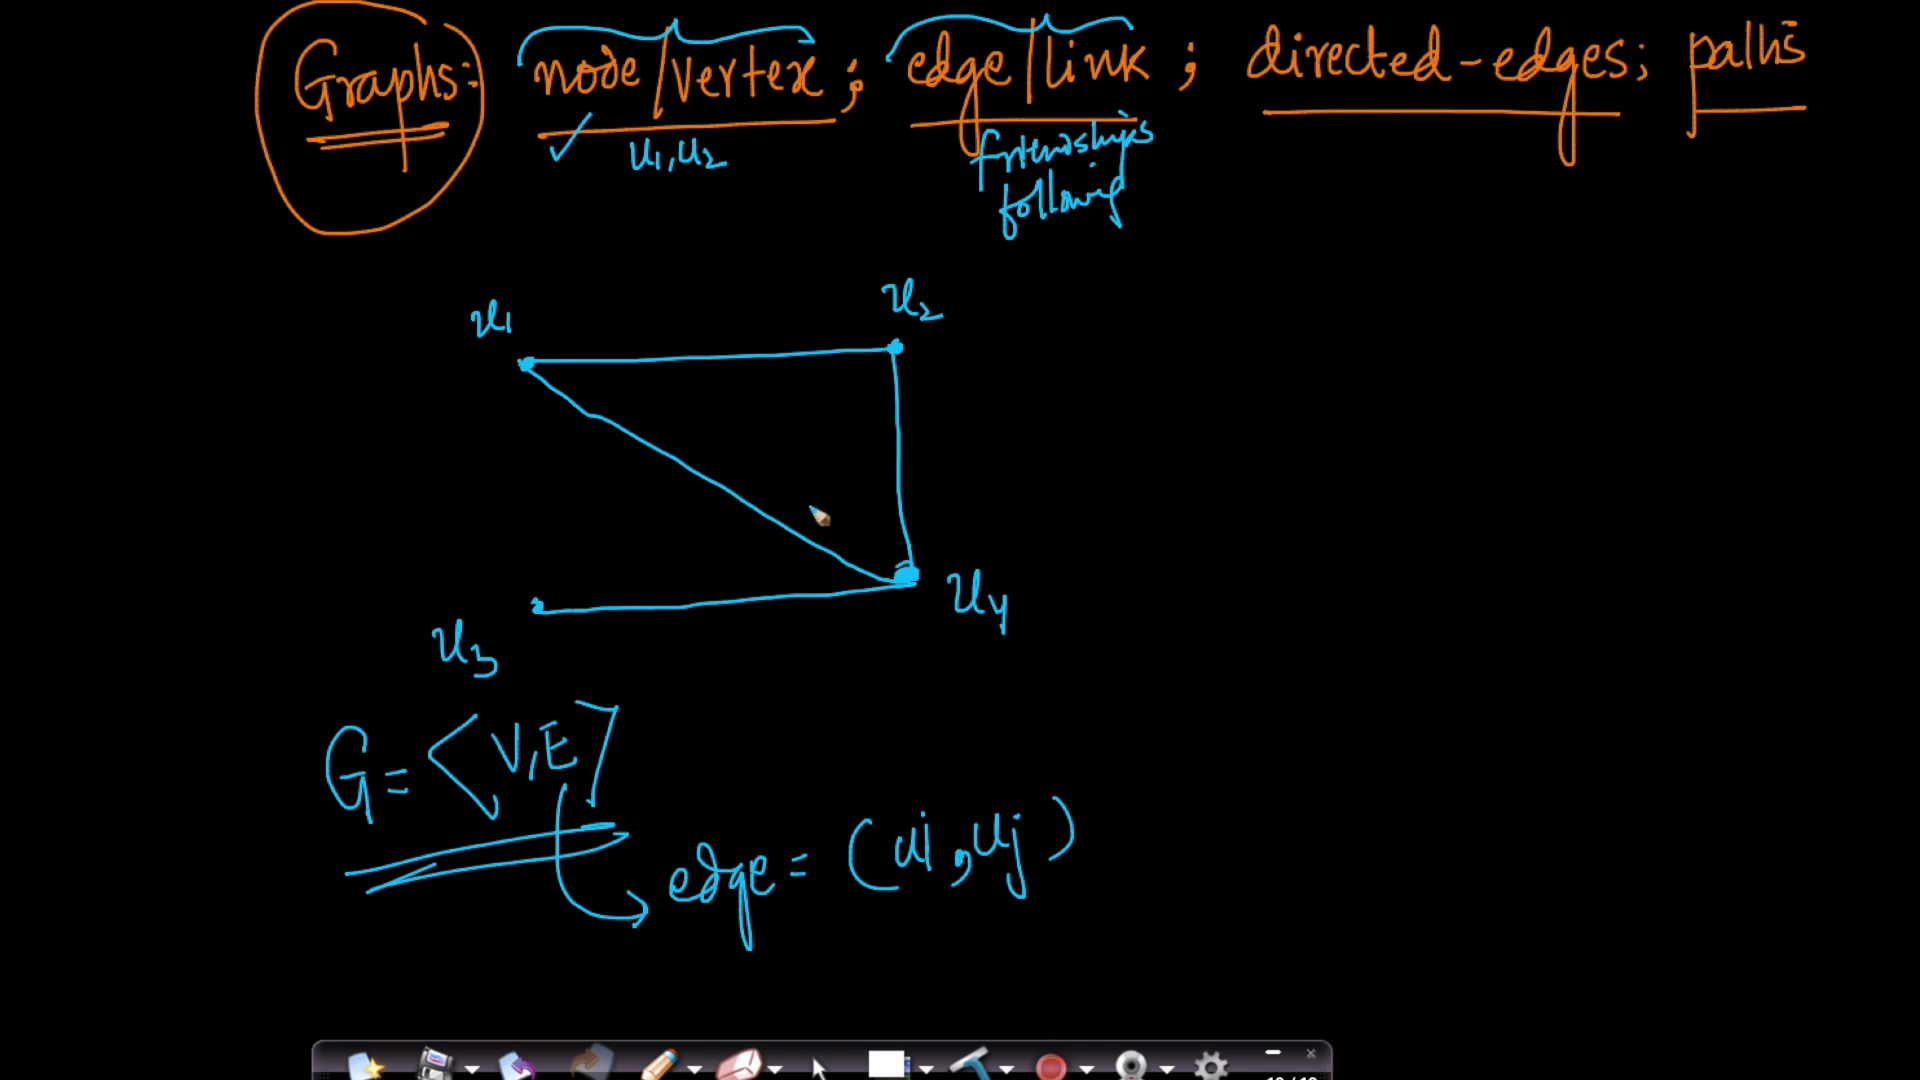 Graphs: node/vertex; edge/link; directed-edges; paths
u1, u2
friendships
following
u1
u2
u4
u3
G = <V, E>
edge = (ui, uj)